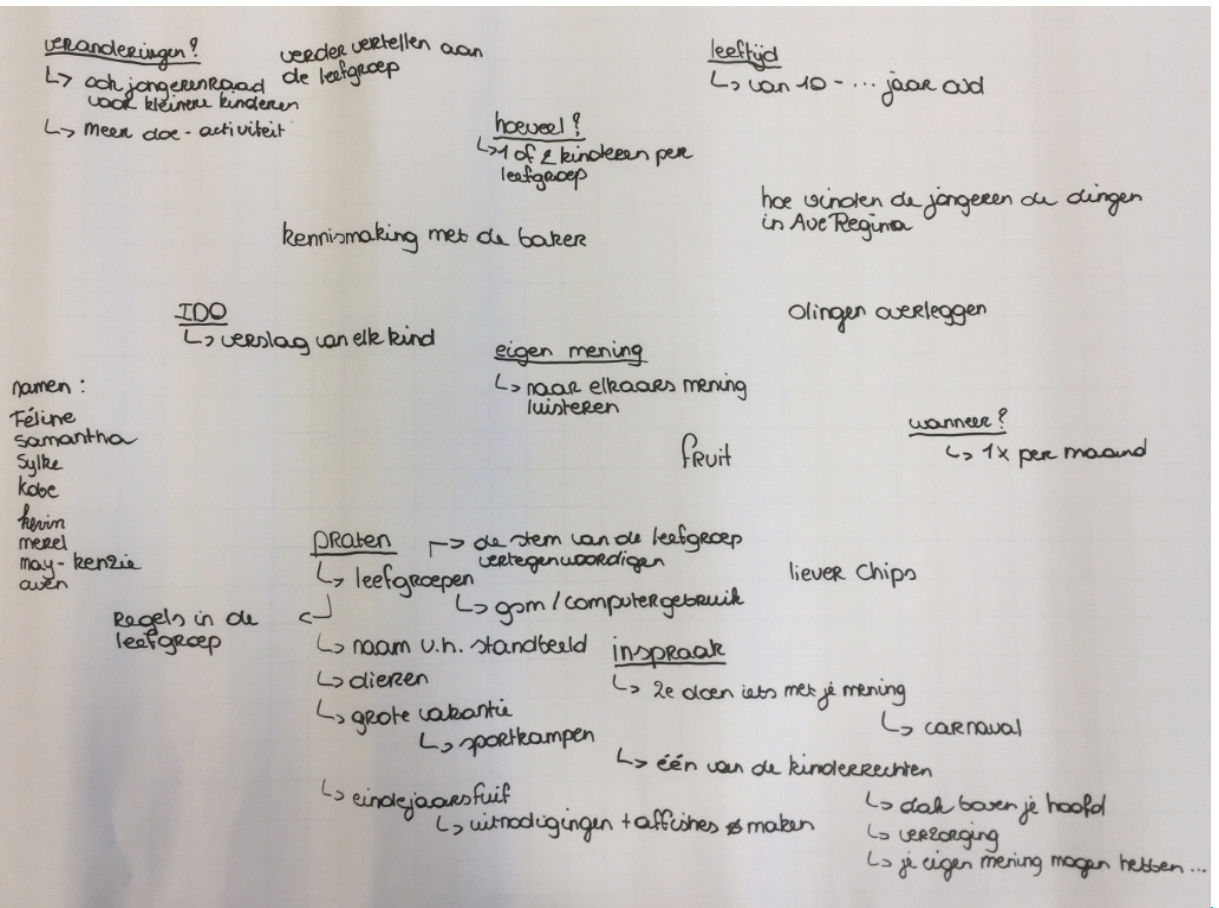 veranderingen?
↳ ook jongerenraad
voor kleinere kinderen
↳ meer doe-activiteit
verder vertellen aan
de leefgroep
leeftijd
↳ van 10 - ... jaar oud
hoeveel?
↳ 1 of 2 kinderen per
leefgroep
hoe vinden de jongeren de dingen
in Ave Regina
kennismaking met de bakker
IDO
↳ verslag van elk kind
dingen overleggen
eigen mening
↳ naar elkaars mening
luisteren
namen :
Féline
Samantha
Sylke
kobe
kevin
merel
may-kenzie
aven
fruit
wanneer?
↳ 1x per maand
praten
↳ leefgroepen
→ de stem van de leefgroep
vertegenwoordigen
↳ gsm / computergebruik
Regels in de
leefgroep
↳ naam v.h. standbeeld
↳ dieren
↳ grote vakantie
↳ sportkampen
↳ eindejaarsfuif
↳ uitnodigingen + affishes maken
liever chips
inspraak
↳ ze doen iets met je mening
↳ carnaval
↳ één van de kinderrechten
↳ dak boven je hoofd
↳ verzorging
↳ je eigen mening mogen hebben ...